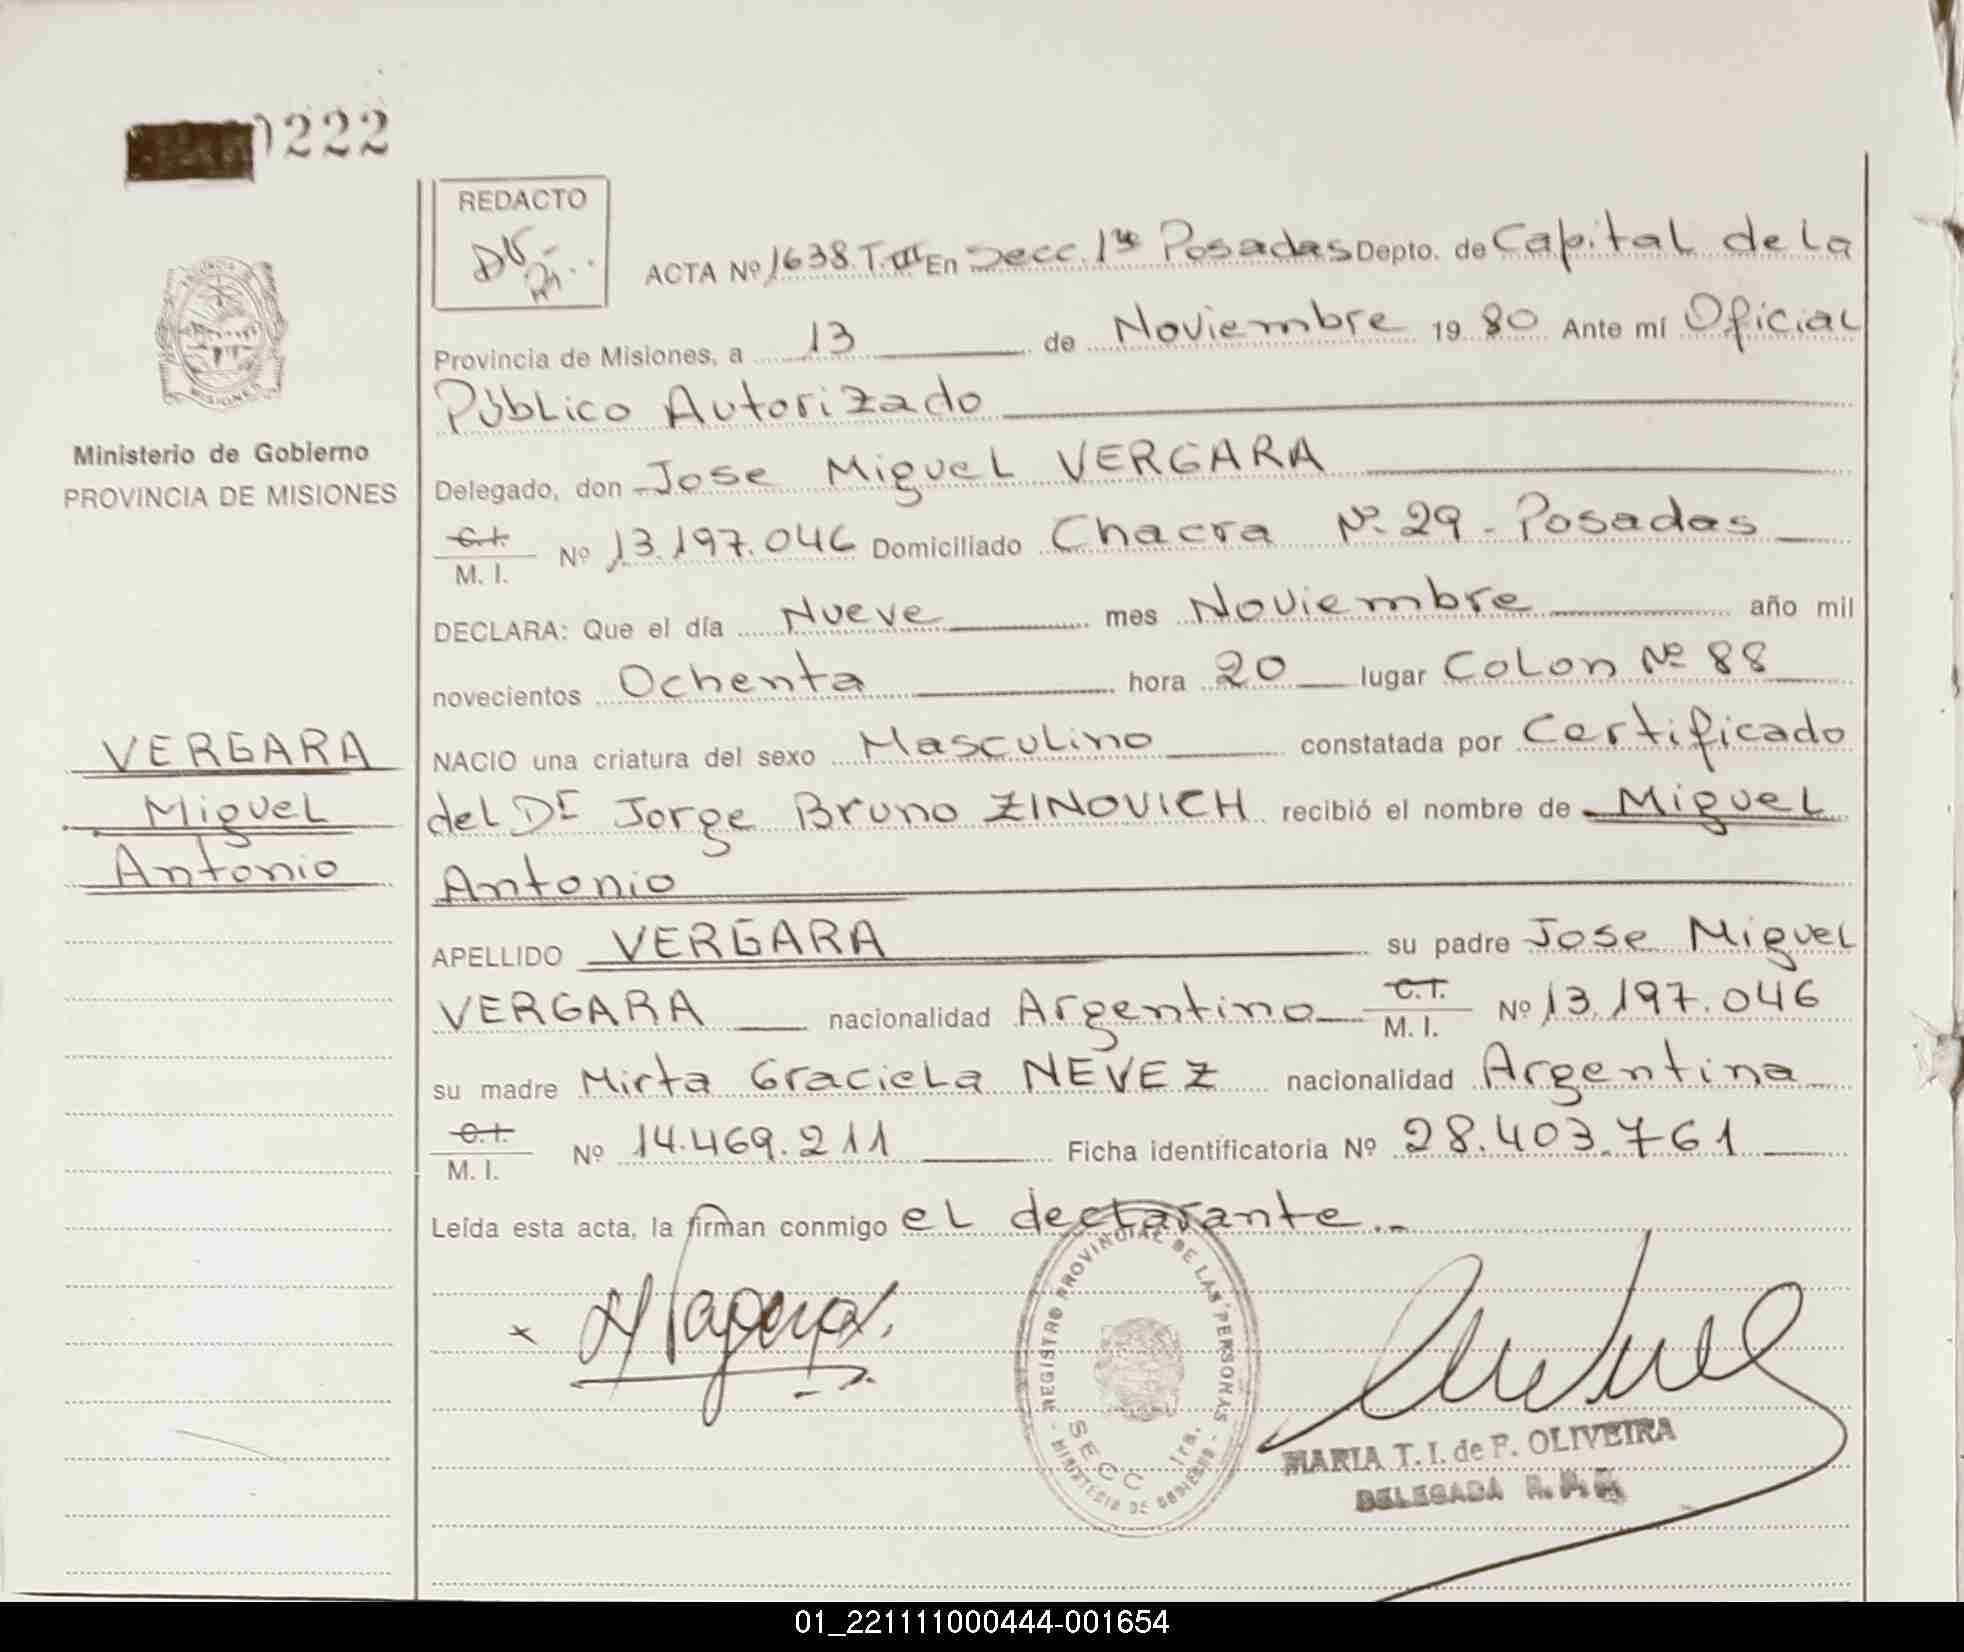 222
REDACTO
ACTA Nº 1638 T. III En Secc. 1ra Posadas Depto. de Capital de La
Provincia de Misiones, a 13 de Noviembre 19 80 Ante mí Oficial
Público Autorizado
Ministerio de Gobierno
PROVINCIA DE MISIONES
Delegado, don Jose Miguel VERGARA
C.I.
M. I. Nº 13.197.046 Domiciliado Chacra Nº 29 - Posadas
DECLARA: Que el día Nueve mes Noviembre año mil
novecientos Ochenta hora 20 lugar Colon Nº 88
VERGARA
Miguel
Antonio
NACIO una criatura del sexo Masculino constatada por Certificado
del Dr Jorge Bruno ZINOVICH recibió el nombre de Miguel
Antonio
APELLIDO VERGARA su padre Jose Miguel
VERGARA nacionalidad Argentino C.I. M. I. Nº 13.197.046
su madre Mirta Graciela NEVEZ nacionalidad Argentina
C.I.
M. I. Nº 14.469.211 Ficha identificatoria Nº 28.403.761
Leída esta acta, la firman conmigo el declarante..
REGISTRO PROVINCIAL DE LAS PERSONAS
SECC. 1ra.
MINISTERIO DE GOBIERNO
MARIA T. I. de F. OLIVEIRA
DELEGADA
MISIONES
01_221111000444-001654